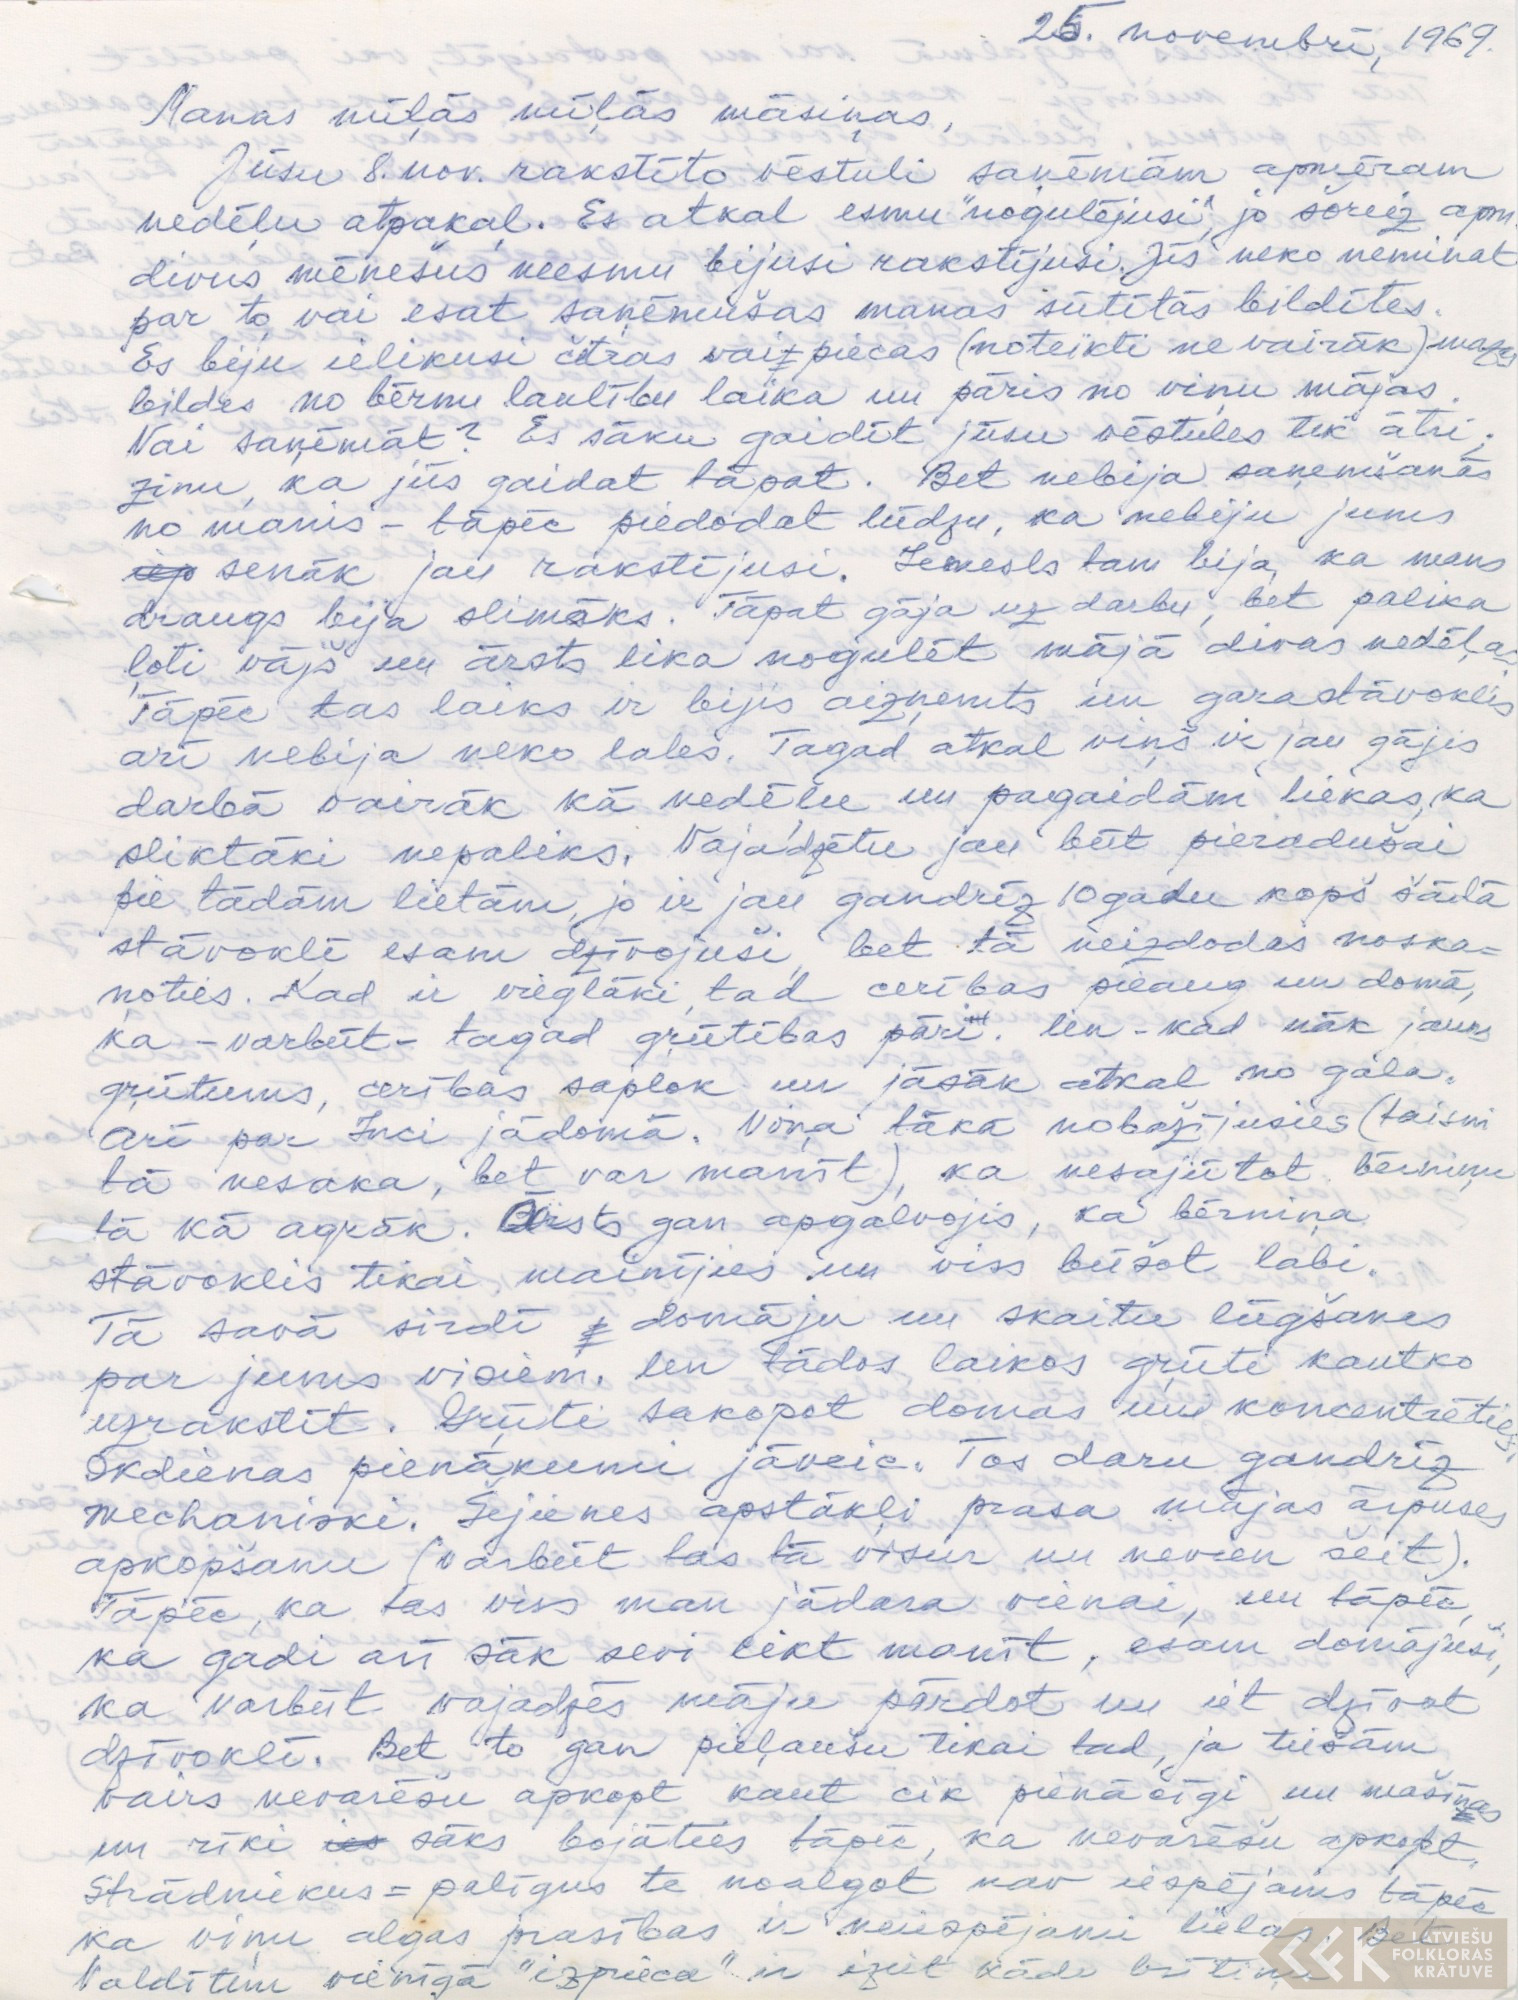 25. novembrī, 1969.
Manas mīļās mīļās māsiņas,
Jūsu 8. nov. rakstīto vēstuli saņēmām apmēram
nedēļu atpakaļ. Es atkal esmu "nogulējusi", jo šoreiz apm.
divus mēnešus neesmu bijusi rakstījusi. Jūs neko neminat
par to, vai esat saņēmušas manas sūtītās bildītes.
Es biju ielikusi četras vai piecas (noteikti ne vairāk) mazas
bildes no bērnu laulību laika un pāris no viņu mājas.
Vai saņēmāt? Es sāku gaidīt jūsu vēstules tik ātri,
zinu, ka jūs gaidat tāpat. Bet nebija saņemšanās
no manis - tāpēc piedodat lūdzu, ka nebiju jums
senāk jau rakstījusi. Iemesls tam bija, ka mans
draugs bija slimāks. Tāpat gāja uz darbu, bet palika
ļoti vājš un ārsts lika nogulēt mājā divas nedēļas.
Tāpēc tas laiks ir bijis aizņemts un garastāvoklis
arī nebija neko labs. Tagad atkal viņš ir jau gājis
darbā vairāk kā nedēļu un pagaidām liekas, ka
sliktāki nepaliks. Vajadzētu jau būt pieradušai
pie tādām lietām, jo ir jau gandrīz 10 gadu kopš šādā
stāvoklī esam dzīvojuši, bet tā neizdodas noska=
ņoties. Kad ir vieglāki, tad cerības pieaug un domā,
ka - varbūt - tagad grūtības pāri. Un - kad nāk jauns
grūtums, cerības saplok un jāsāk atkal no gala.
Arī par Inci jādomā. Viņa tākā nobažījusies (taisni
tā nesaka, bet var manīt), ka nesajūtot bērniņu
tā kā agrāk. Ārsts gan apgalvojis, ka bērniņa
stāvoklis tikai mainījies un viss būšot labi.
Tā savā sirdī domāju un skaitu lūgšanas
par jums visiem. Un tādos laikos grūti kautko
uzrakstīt. Grūti sakopot domas un koncentrēties.
Ikdienas pienākumi jāveic. Tos daru gandrīz
mechaniski. Šejienes apstākļi prasa mājas ārpuses
apkopšanu (varbūt tas tā visur un nevien šeit).
Tāpēc, ka tas viss man jādara vienai, un tāpēc,
ka gadi arī sāk sevi likt manīt, esam domājuši,
ka varbūt vajadzēs māju pārdot un iet dzīvot
dzīvoklī. Bet to gan pieļaušu tikai tad, ja tiešām
vairs nevarēšu apkopt kaut cik pienācīgi un mašīnas
un rīki sāks bojāties tāpēc, ka nevarēšu apkopt.
Strādniekus = palīgus te noalgot nav iespējams tāpēc
ka viņu algas prasības ir neiespējami lielas. Bet
Valdītim vienīgā "izprieca" ir iziet kādu brītiņu
LATVIEŠU
FOLKLORAS
KRĀTUVE